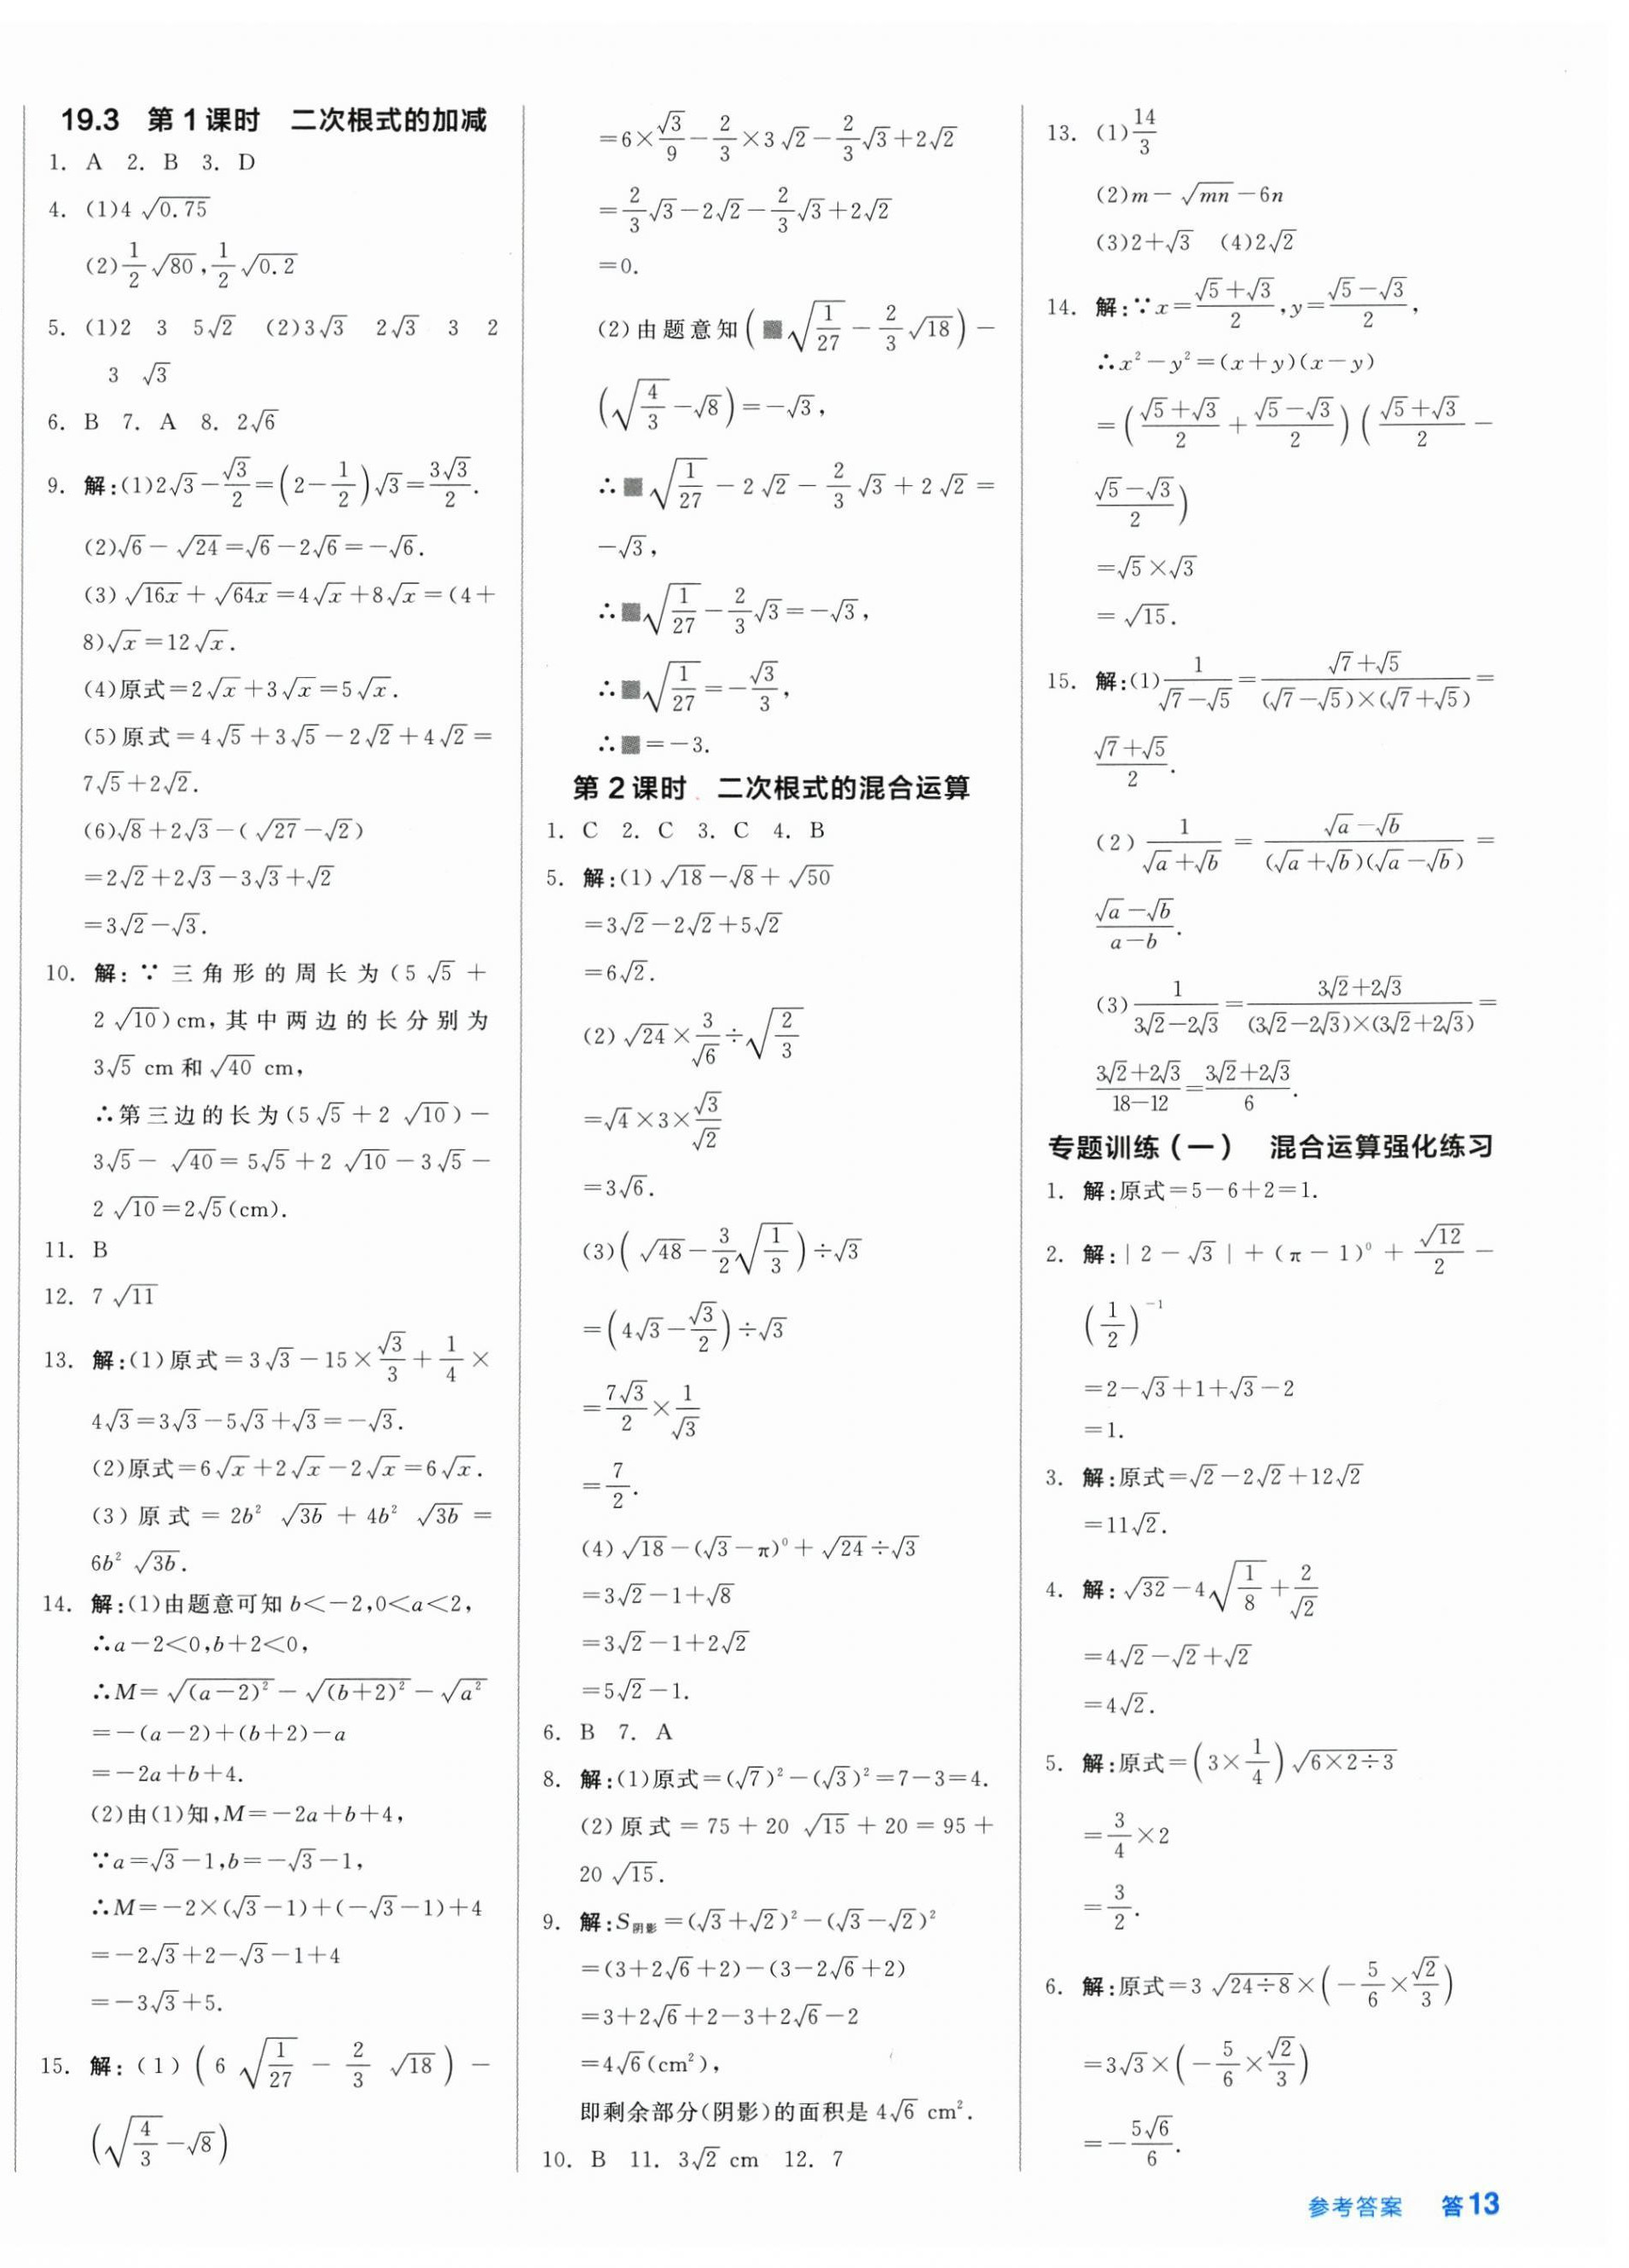 19.3 第1课时 二次根式的加减
1. A 2. B 3. D
4. (1)4√0.75
(2)1/2√80,1/2√0.2
5. (1)2 3 5√2 (2)3√3 2√3 3 2
3 √3
6. B 7. A 8. 2√6
9. 解:(1)2√3-√3/2=(2-1/2)√3=3√3/2.
(2)√6-√24=√6-2√6=-√6.
(3)√(16x)+√(64x)=4√x+8√x=(4+
8)√x=12√x.
(4)原式=2√x+3√x=5√x.
(5)原式=4√5+3√5-2√2+4√2=
7√5+2√2.
(6)√8+2√3-(√27-√2)
=2√2+2√3-3√3+√2
=3√2-√3.
10. 解:∵三角形的周长为(5√5+
2√10)cm,其中两边的长分别为
3√5 cm和√40 cm,
∴第三边的长为(5√5+2√10)-
3√5-√40=5√5+2√10-3√5-
2√10=2√5(cm).
11. B
12. 7√11
13. 解:(1)原式=3√3-15×√3/3+1/4×
4√3=3√3-5√3+√3=-√3.
(2)原式=6√x+2√x-2√x=6√x.
(3)原式=2b²√(3b)+4b²√(3b)=
6b²√(3b).
14. 解:(1)由题意可知b<-2,0<a<2,
∴a-2<0,b+2<0,
∴M=√((a-2)²)-√((b+2)²)-√(a²)
=-(a-2)+(b+2)-a
=-2a+b+4.
(2)由(1)知,M=-2a+b+4,
∵a=√3-1,b=-√3-1,
∴M=-2×(√3-1)+(-√3-1)+4
=-2√3+2-√3-1+4
=-3√3+5.
15. 解:(1)(6√(1/27)-2/3√18)-
(√(4/3)-√8)
=6×√3/9-2/3×3√2-2/3√3+2√2
=2/3√3-2√2-2/3√3+2√2
=0.
(2)由题意知(■√(1/27)-2/3√18)-
(√(4/3)-√8)=-√3,
∴■√(1/27)-2√2-2/3√3+2√2=
-√3,
∴■√(1/27)-2/3√3=-√3,
∴■√(1/27)=-√3/3,
∴■=-3.
第2课时 二次根式的混合运算
1. C 2. C 3. C 4. B
5. 解:(1)√18-√8+√50
=3√2-2√2+5√2
=6√2.
(2)√24×3/√6÷√(2/3)
=√4×3×√3/√2
=3√6.
(3)(√48-3/2√(1/3))÷√3
=(4√3-√3/2)÷√3
=7√3/2×1/√3
=7/2.
(4)√18-(√3-π)⁰+√24÷√3
=3√2-1+√8
=3√2-1+2√2
=5√2-1.
6. B 7. A
8. 解:(1)原式=(√7)²-(√3)²=7-3=4.
(2)原式=75+20√15+20=95+
20√15.
9. 解:S阴影=(√3+√2)²-(√3-√2)²
=(3+2√6+2)-(3-2√6+2)
=3+2√6+2-3+2√6-2
=4√6(cm²),
即剩余部分(阴影)的面积是4√6 cm².
10. B 11. 3√2 cm 12. 7
13. (1)14/3
(2)m-√(mn)-6n
(3)2+√3 (4)2√2
14. 解:∵x=(√5+√3)/2,y=(√5-√3)/2,
∴x²-y²=(x+y)(x-y)
=((√5+√3)/2+(√5-√3)/2)((√5+√3)/2-
(√5-√3)/2)
=√5×√3
=√15.
15. 解:(1)1/(√7-√5)=(√7+√5)/((√7-√5)×(√7+√5))=
(√7+√5)/2.
(2)1/(√a+√b)=(√a-√b)/((√a+√b)(√a-√b))=
(√a-√b)/(a-b).
(3)1/(3√2-2√3)=(3√2+2√3)/((3√2-2√3)×(3√2+2√3))=
(3√2+2√3)/(18-12)=(3√2+2√3)/6.
专题训练(一) 混合运算强化练习
1. 解:原式=5-6+2=1.
2. 解:|2-√3|+(π-1)⁰+√12/2-
(1/2)⁻¹
=2-√3+1+√3-2
=1.
3. 解:原式=√2-2√2+12√2
=11√2.
4. 解:√32-4√(1/8)+2/√2
=4√2-√2+√2
=4√2.
5. 解:原式=(3×1/4)√(6×2÷3)
=3/4×2
=3/2.
6. 解:原式=3√(24÷8)×(-5/6×√2/3)
=3√3×(-5/6×√2/3)
=-5√6/6.
参考答案 答13